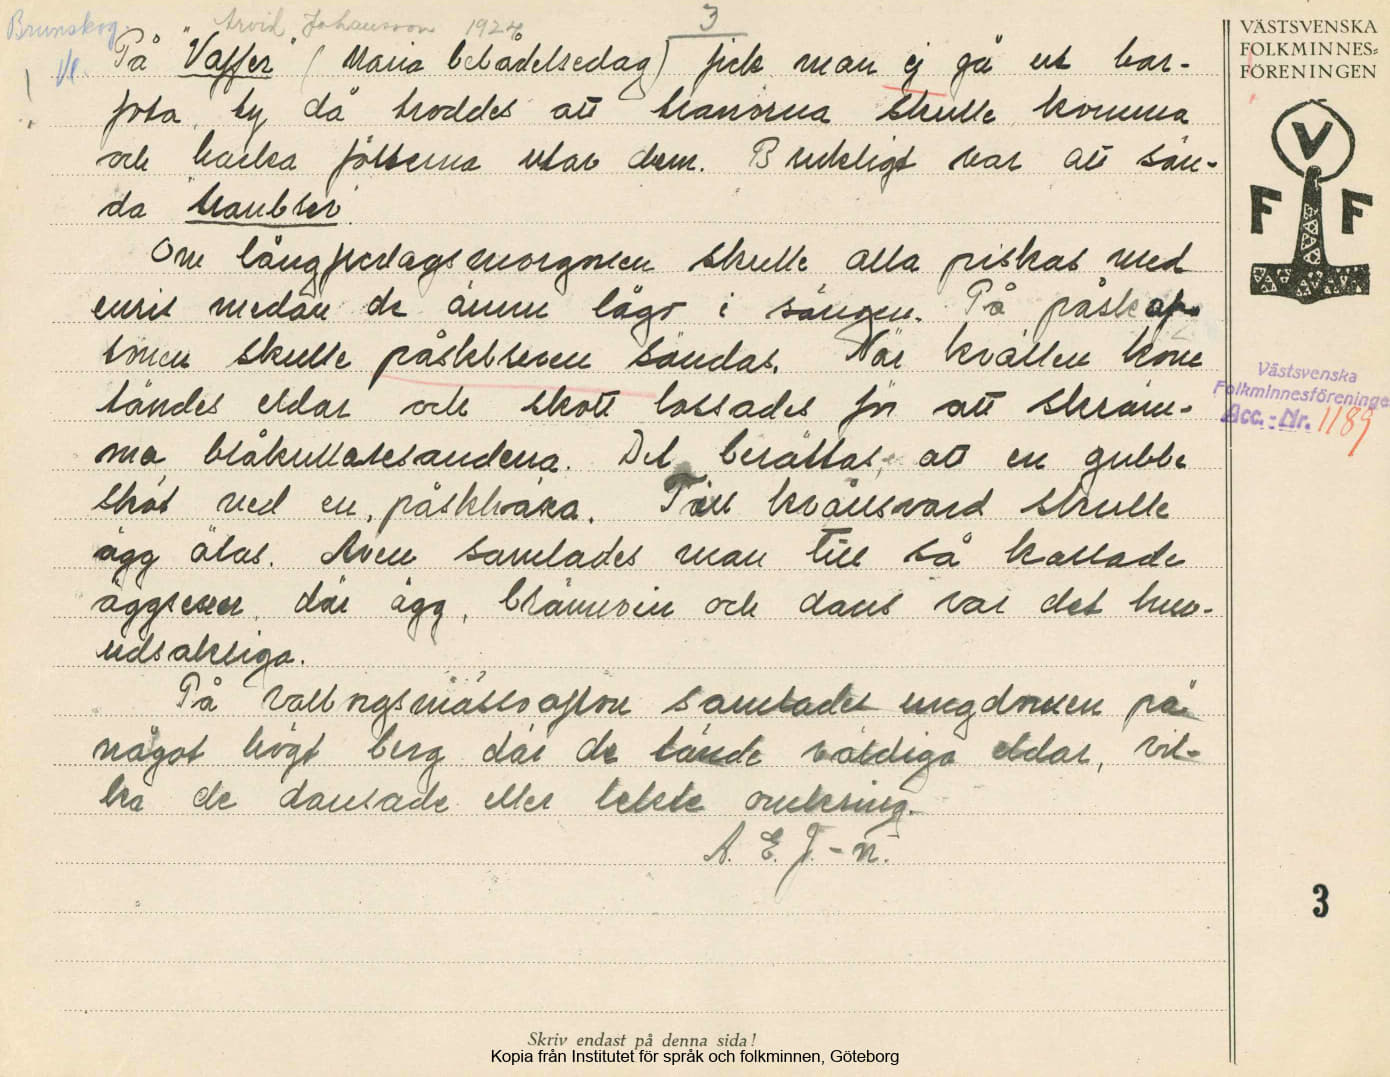 Brunskog
Vl.
Arvid Johansson 1924
3
På "Vaffer" (Maria bebådelsedag) fick man ej gå ut bar-
fota, ty då troddes att tranorna skulle komma
och hacka fötterna utav dem. Brukligt var att sän-
da "tranbrev".
Om långfredagsmorgonen skulle alla piskas med
enris medan de ännu lågo i sängen. På påskaf-
tonen skulle påskbreven sändas. När kvällen kom
tändes eldar och skott lossades för att skräm-
ma blåkullaresandena. Det berättas, att en gubbe
sköt ned en påskhäxa. Till kvällsvard skulle
ägg ätas. Även samlades man till så kallade
äggscexor, där ägg, brännvin och dans var det huv-
udsakliga.
På valborgsmässoafton samlades ungdomen på
något högt berg där de tände väldiga eldar, vil-
ka de dansade eller lekte omkring.
A. E. J.-n.
VÄSTSVENSKA
FOLKMINNES=
FÖRENINGEN
V
F F
Västsvenska
Folkminnesföreningen
Acc.-Nr. 1189
3
Skriv endast på denna sida!
Kopia från Institutet för språk och folkminnen, Göteborg